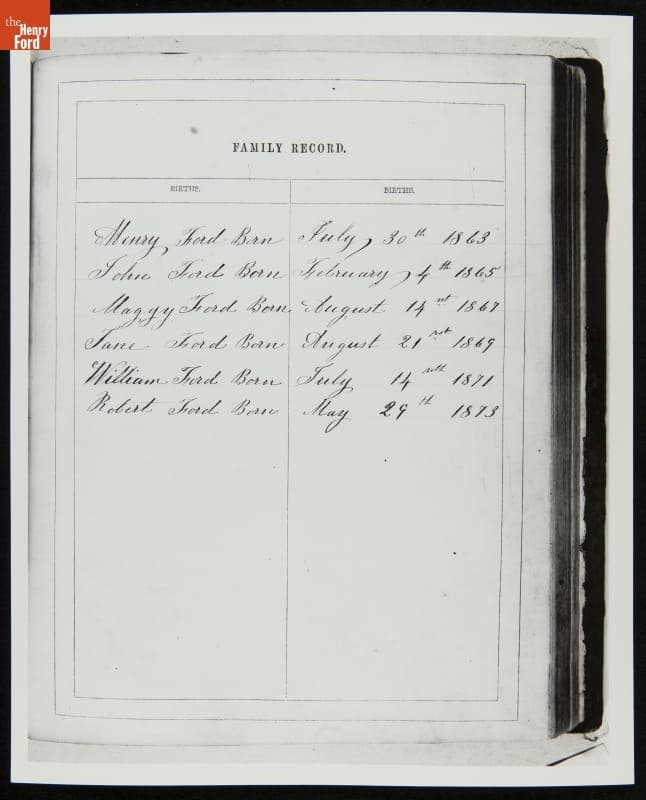 the
Henry
Ford
FAMILY RECORD.
BIRTHS. BIRTHS.
Henry Ford Born July 30th 1863
John Ford Born February 4th 1865
Maggy Ford Born August 14st 1867
Jane Ford Born August 21rst 1869
William Ford Born July 14nth 1871
Robert Ford Born May 29th 1873